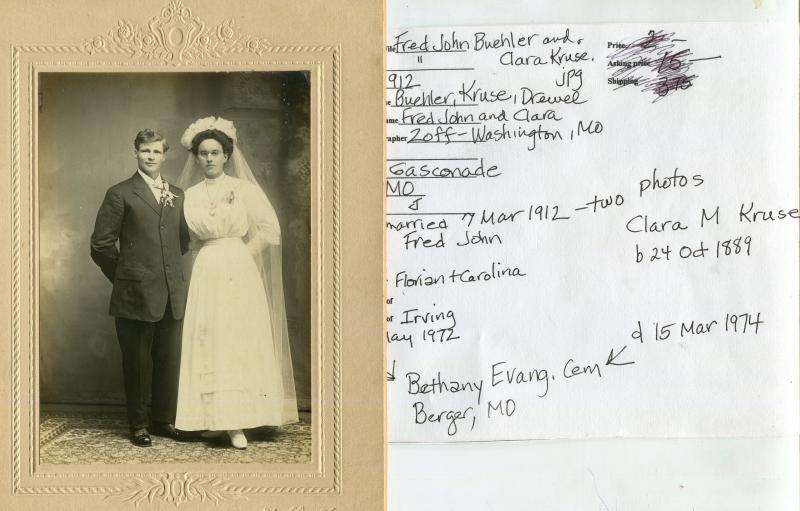 Fred John Buehler and
Clara Kruse.
jpg
912
Buehler, Kruse, Drewel
Fred John and Clara
Zoff - Washington, MO
Gasconade
MO
married 7 Mar 1912 - two photos
Fred John
Clara M Kruse
b 24 Oct 1889
Florian + Carolina
of
of Irving
May 1972
d 15 Mar 1974
Bethany Evang. Cem
Berger, MO
Price
Asking price 15
Shipping